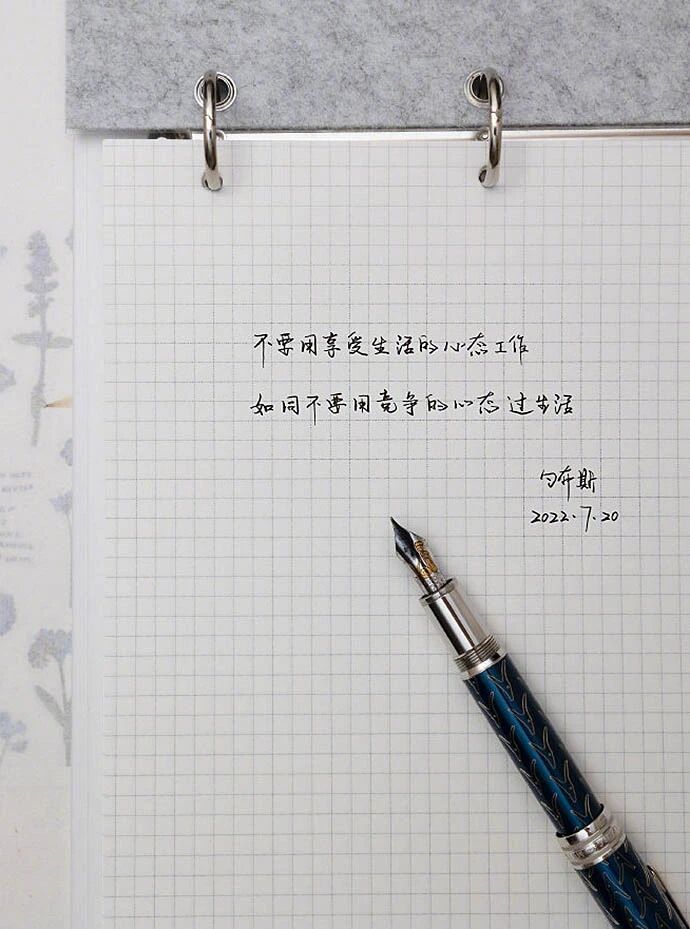 不要用享受生活的心态工作
如同不要用竞争的心态过生活
勺布斯
2022.7.20